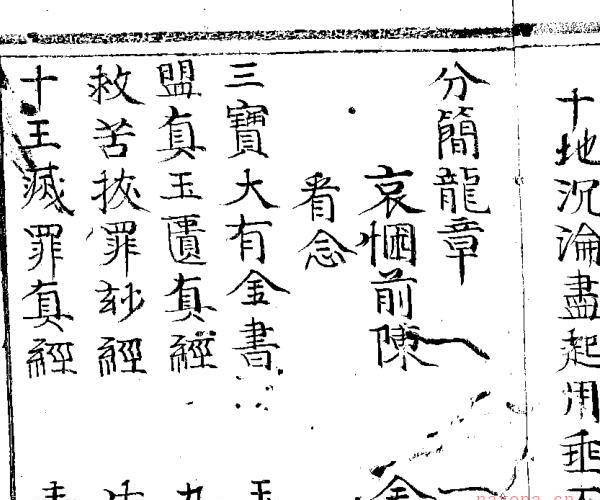 十地沉淪盡起用垂
分簡龍章
哀悃前陳
看念
三寶大有金書
盟真玉匱真經
救苦拔罪玅經
十王滅罪真經